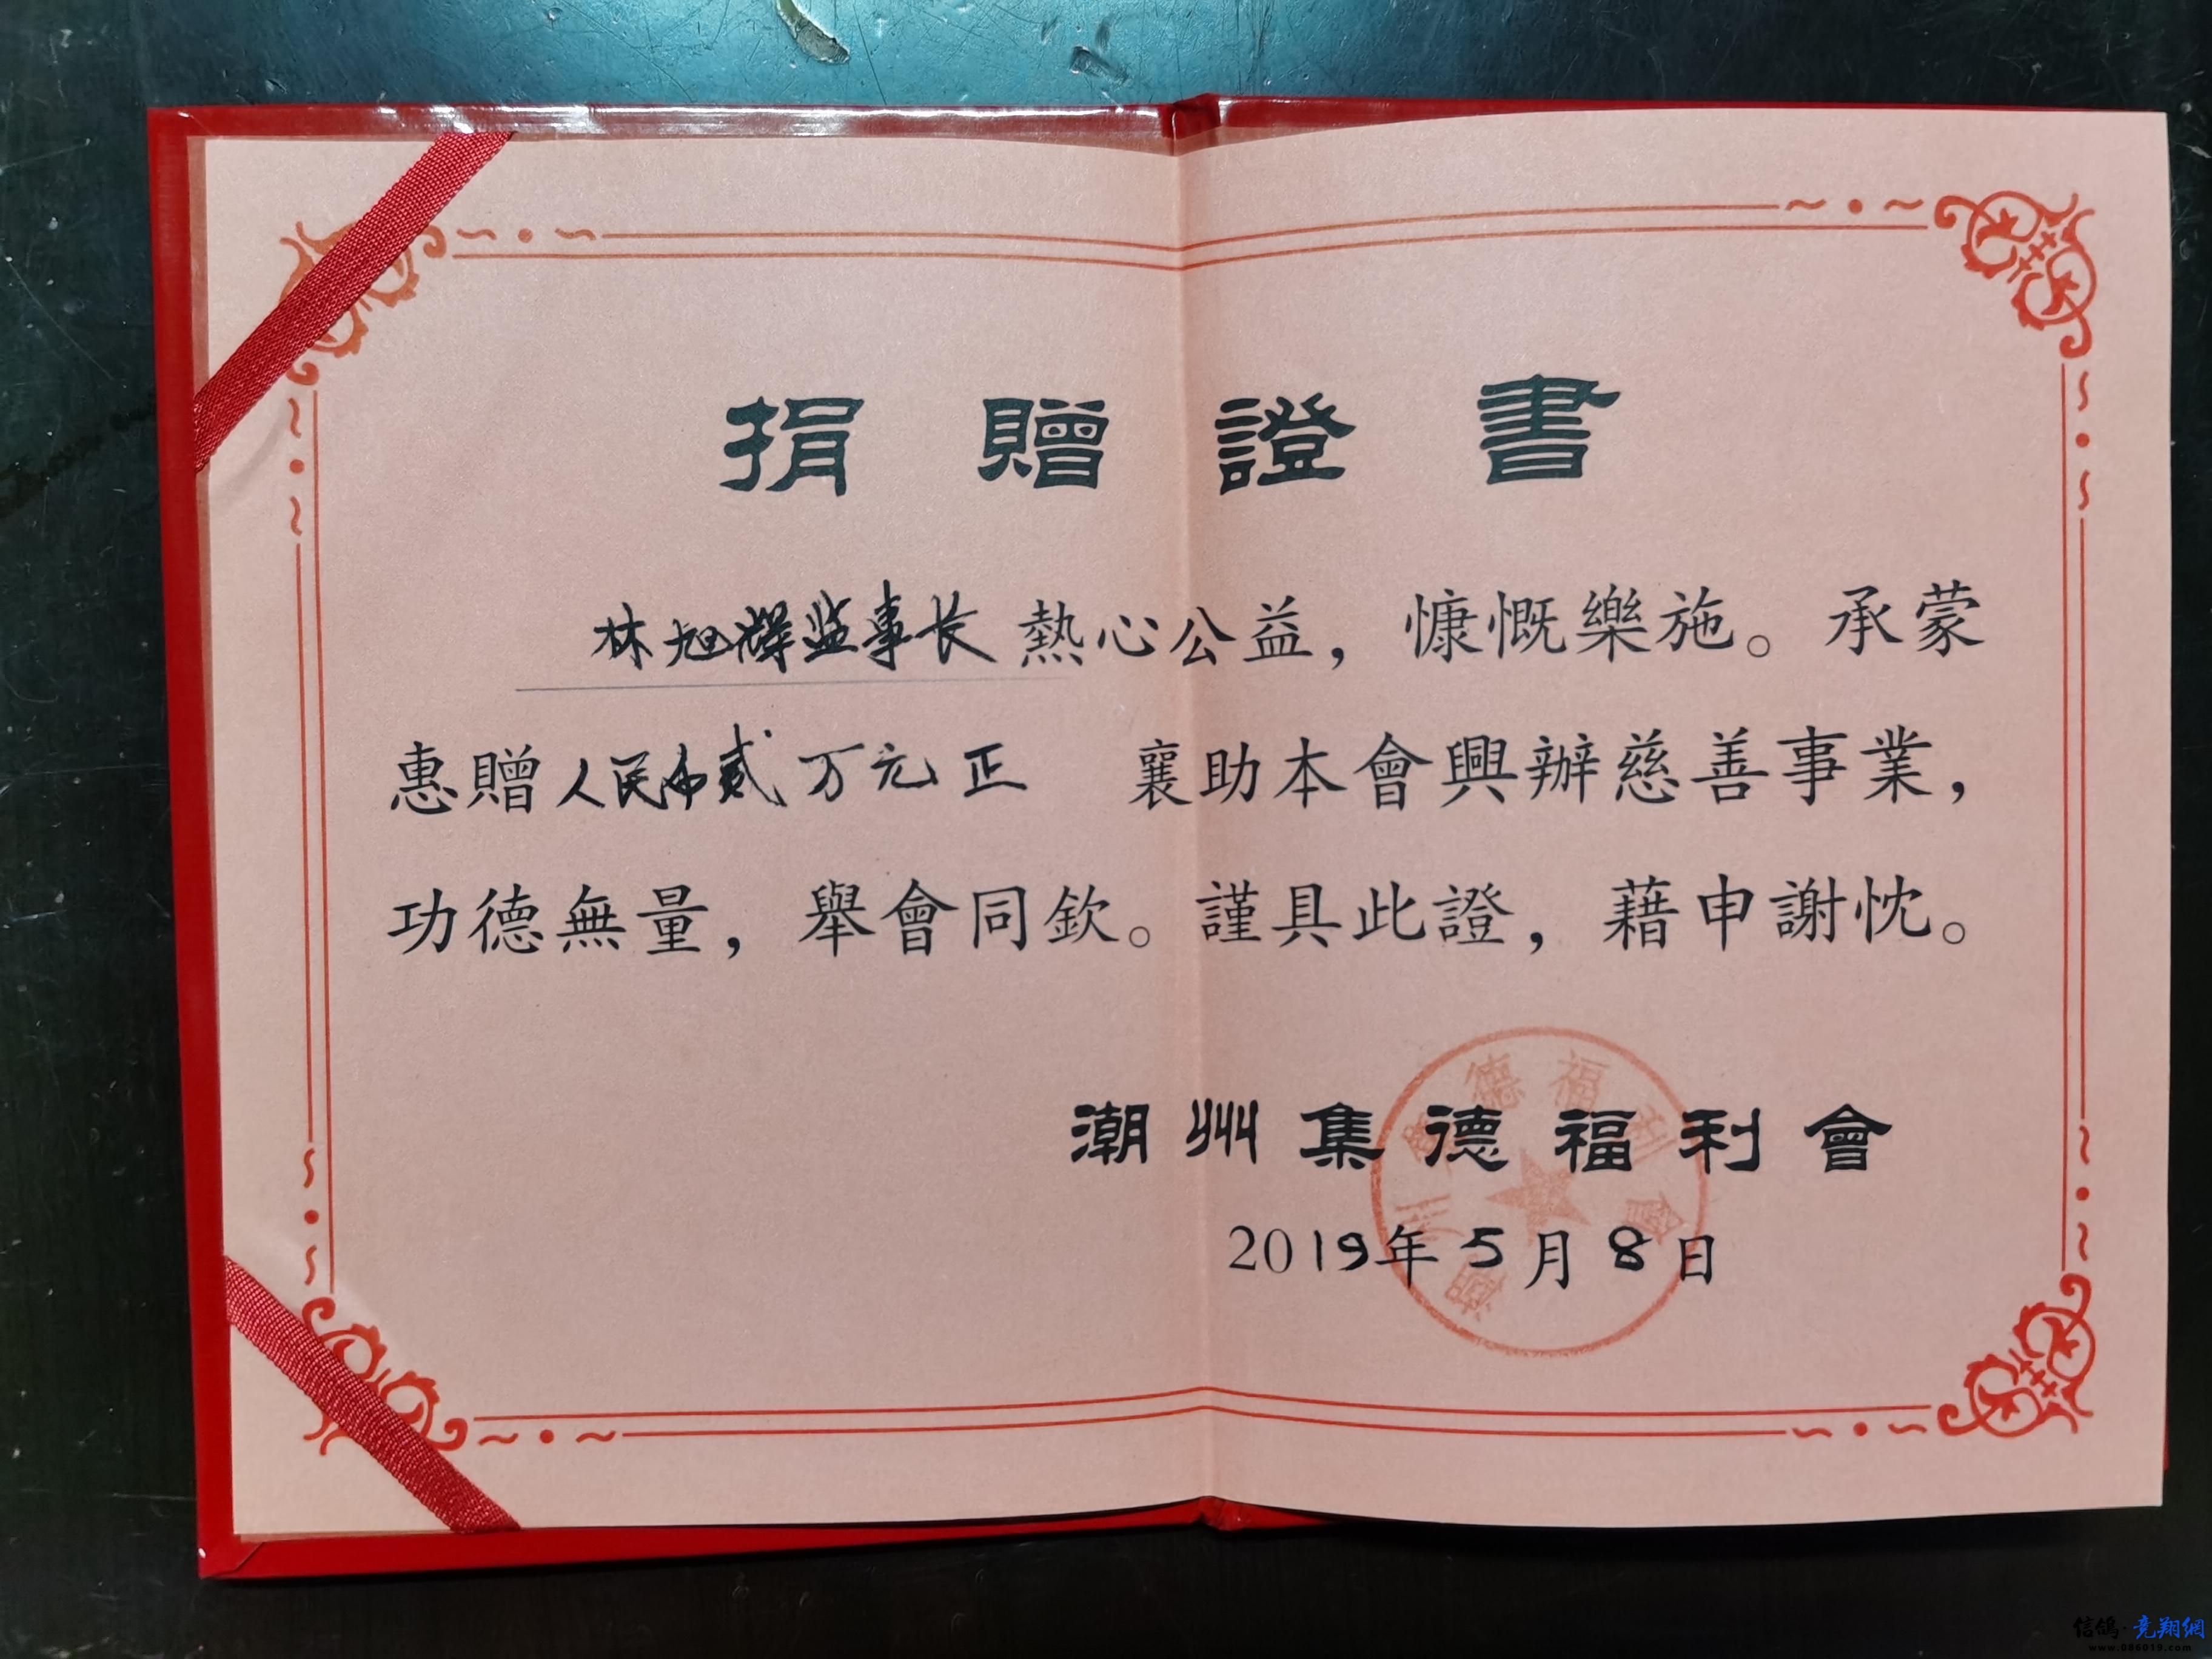 捐贈證書
林旭潭监事长熱心公益，慷慨樂施。承蒙
惠贈人民币贰万元正 襄助本會興辦慈善事業，
功德無量，舉會同欽。謹具此證，藉申謝忱。
潮州集德福利會
2019年5月8日
潮州集德福利會
信鴿·竞翔網
www.086019.com